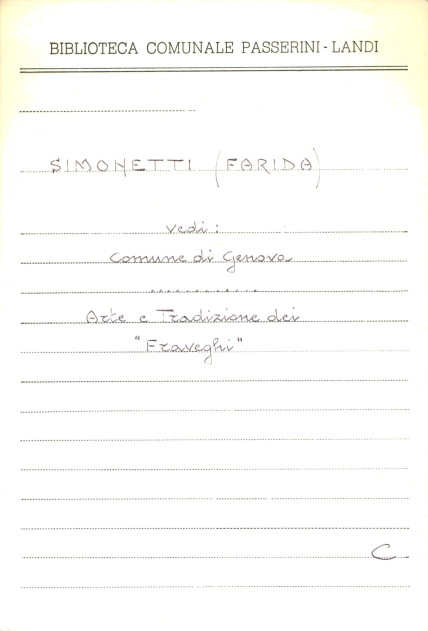 BIBLIOTECA COMUNALE PASSERINI - LANDI
SIMONETTI (FARIDA)
vedi:
Comune di Genova
............
Arte e Tradizione dei
"Fraveghi"
C